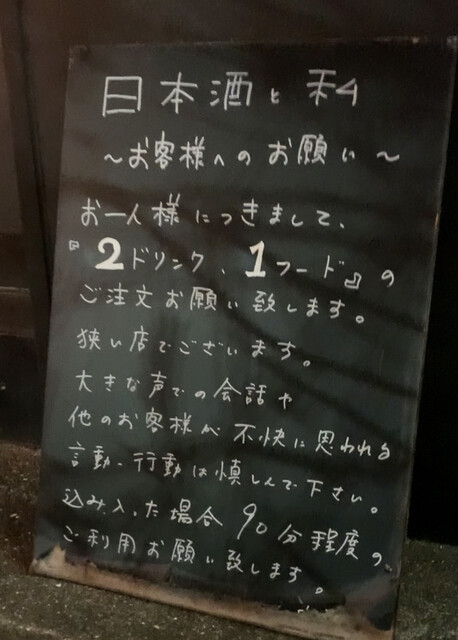 日本酒と 和
～お客様へのお願い～
お一人様につきまして、
『2ドリンク、1フード』の
ご注文お願い致します。
狭い店でございます。
大きな声での会話や
他のお客様が不快に思われる
言動、行動は慎しんで下さい。
込み入った場合90分程度の
ご利用お願い致します。